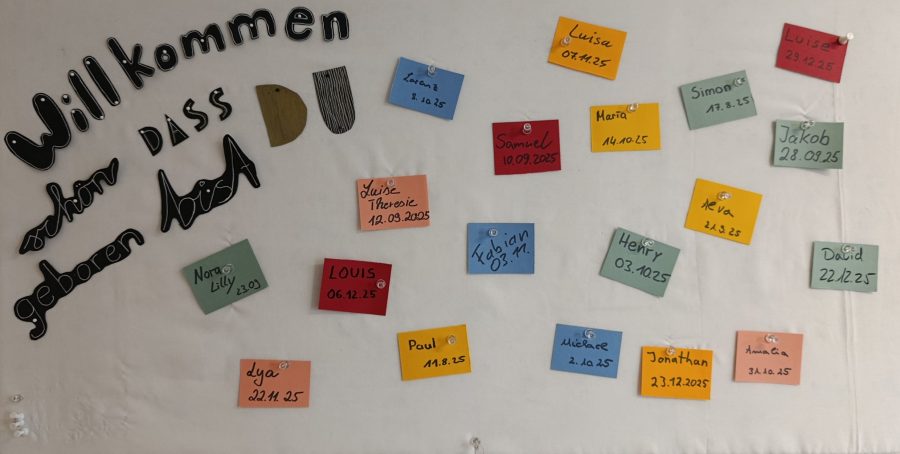 Willkommen
schön
DASS
DU
geboren
bist
Lorenz
8.10.25
Luisa
07.11.25
Luise
29.12.25
Simon
17.8.25
Maria
14.10.25
Samuel
10.09.2025
Jakob
28.09.25
Luise
Theresie
12.09.2025
Alva
21.9.25
Fabian
03.11.
Henry
03.10.25
David
22.12.25
Nora
Lilly
23.09
LOUIS
06.12.25
Paul
11.8.25
Michael
2.10.25
Jonathan
23.12.2025
Amalia
31.10.25
Lya
22.11.25